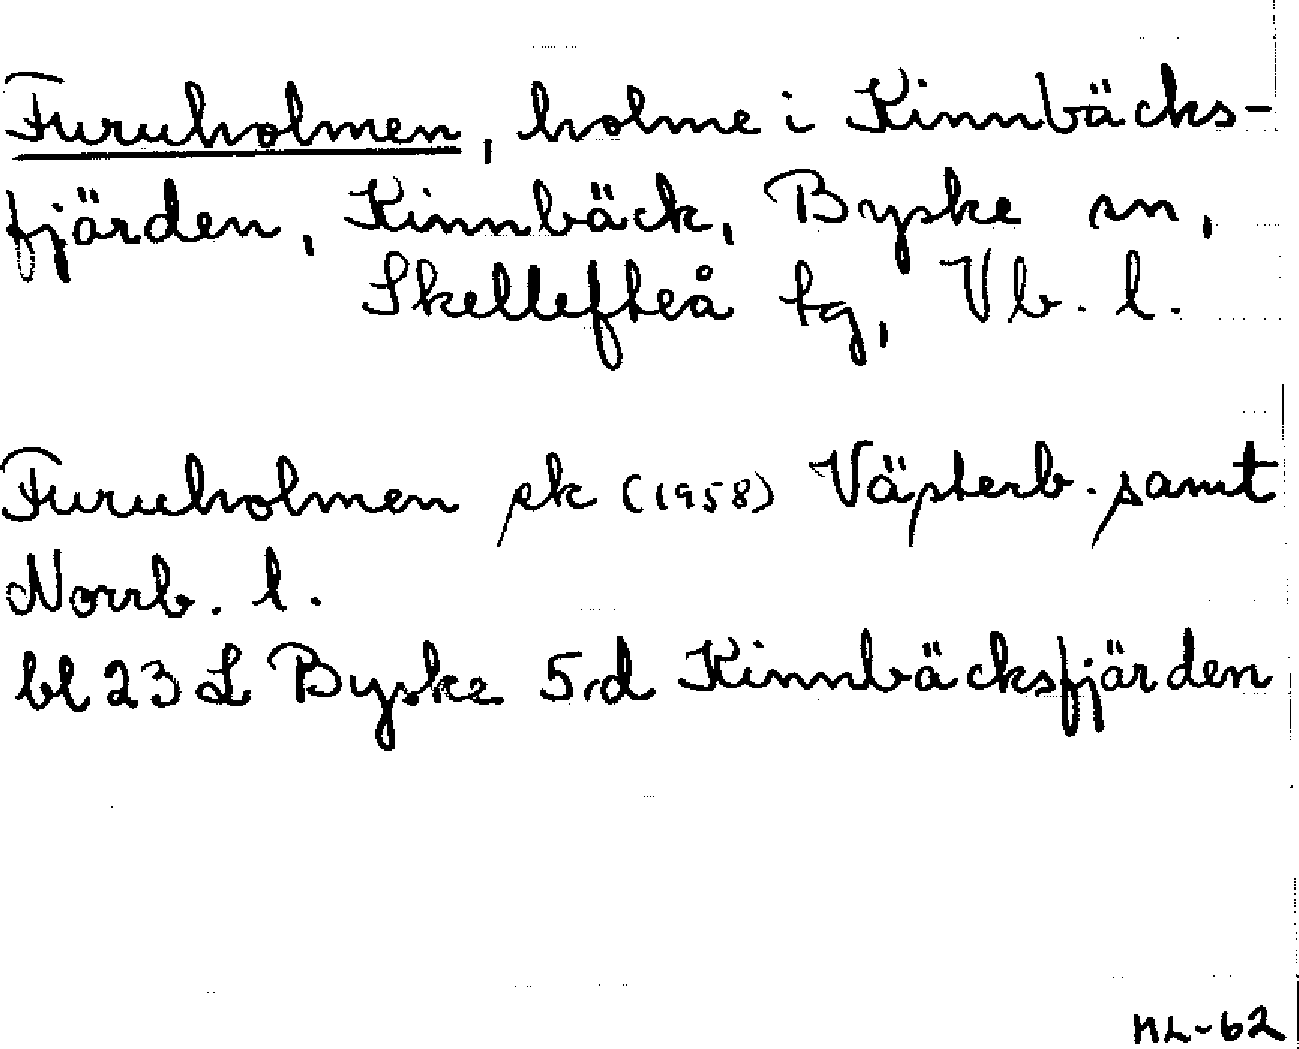 Furuholmen, holme i Kinnbäcks-
fjärden, Kinnbäck, Byske sn,
Skellefteå tg, Vb. l.
Furuholmen ek (1958) Västerb. samt
Norrb. l.
bl 23 L Byske 5 d Kinnbäcksfjärden
ML-62